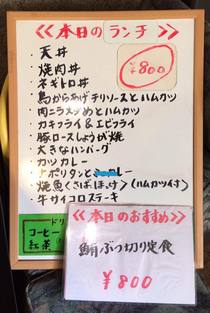 ≪本日のランチ≫
¥800
・天丼
・焼肉丼
・ネギトロ丼
・鳥からあげチリソースとハムカツ
・肉ニラ炒めとハムカツ
・カキフライ&エビフライ
・豚ロースしょうが焼
・大きなハンバーグ
・カツカレー
・ナポリタンと
・焼魚<さば、ほっけ>(ハムカツ付)
・牛サイコロステーキ
ドリ
コーヒー
紅茶
≪本日のおすすめ≫
鮪ぶつ切り定食
¥800